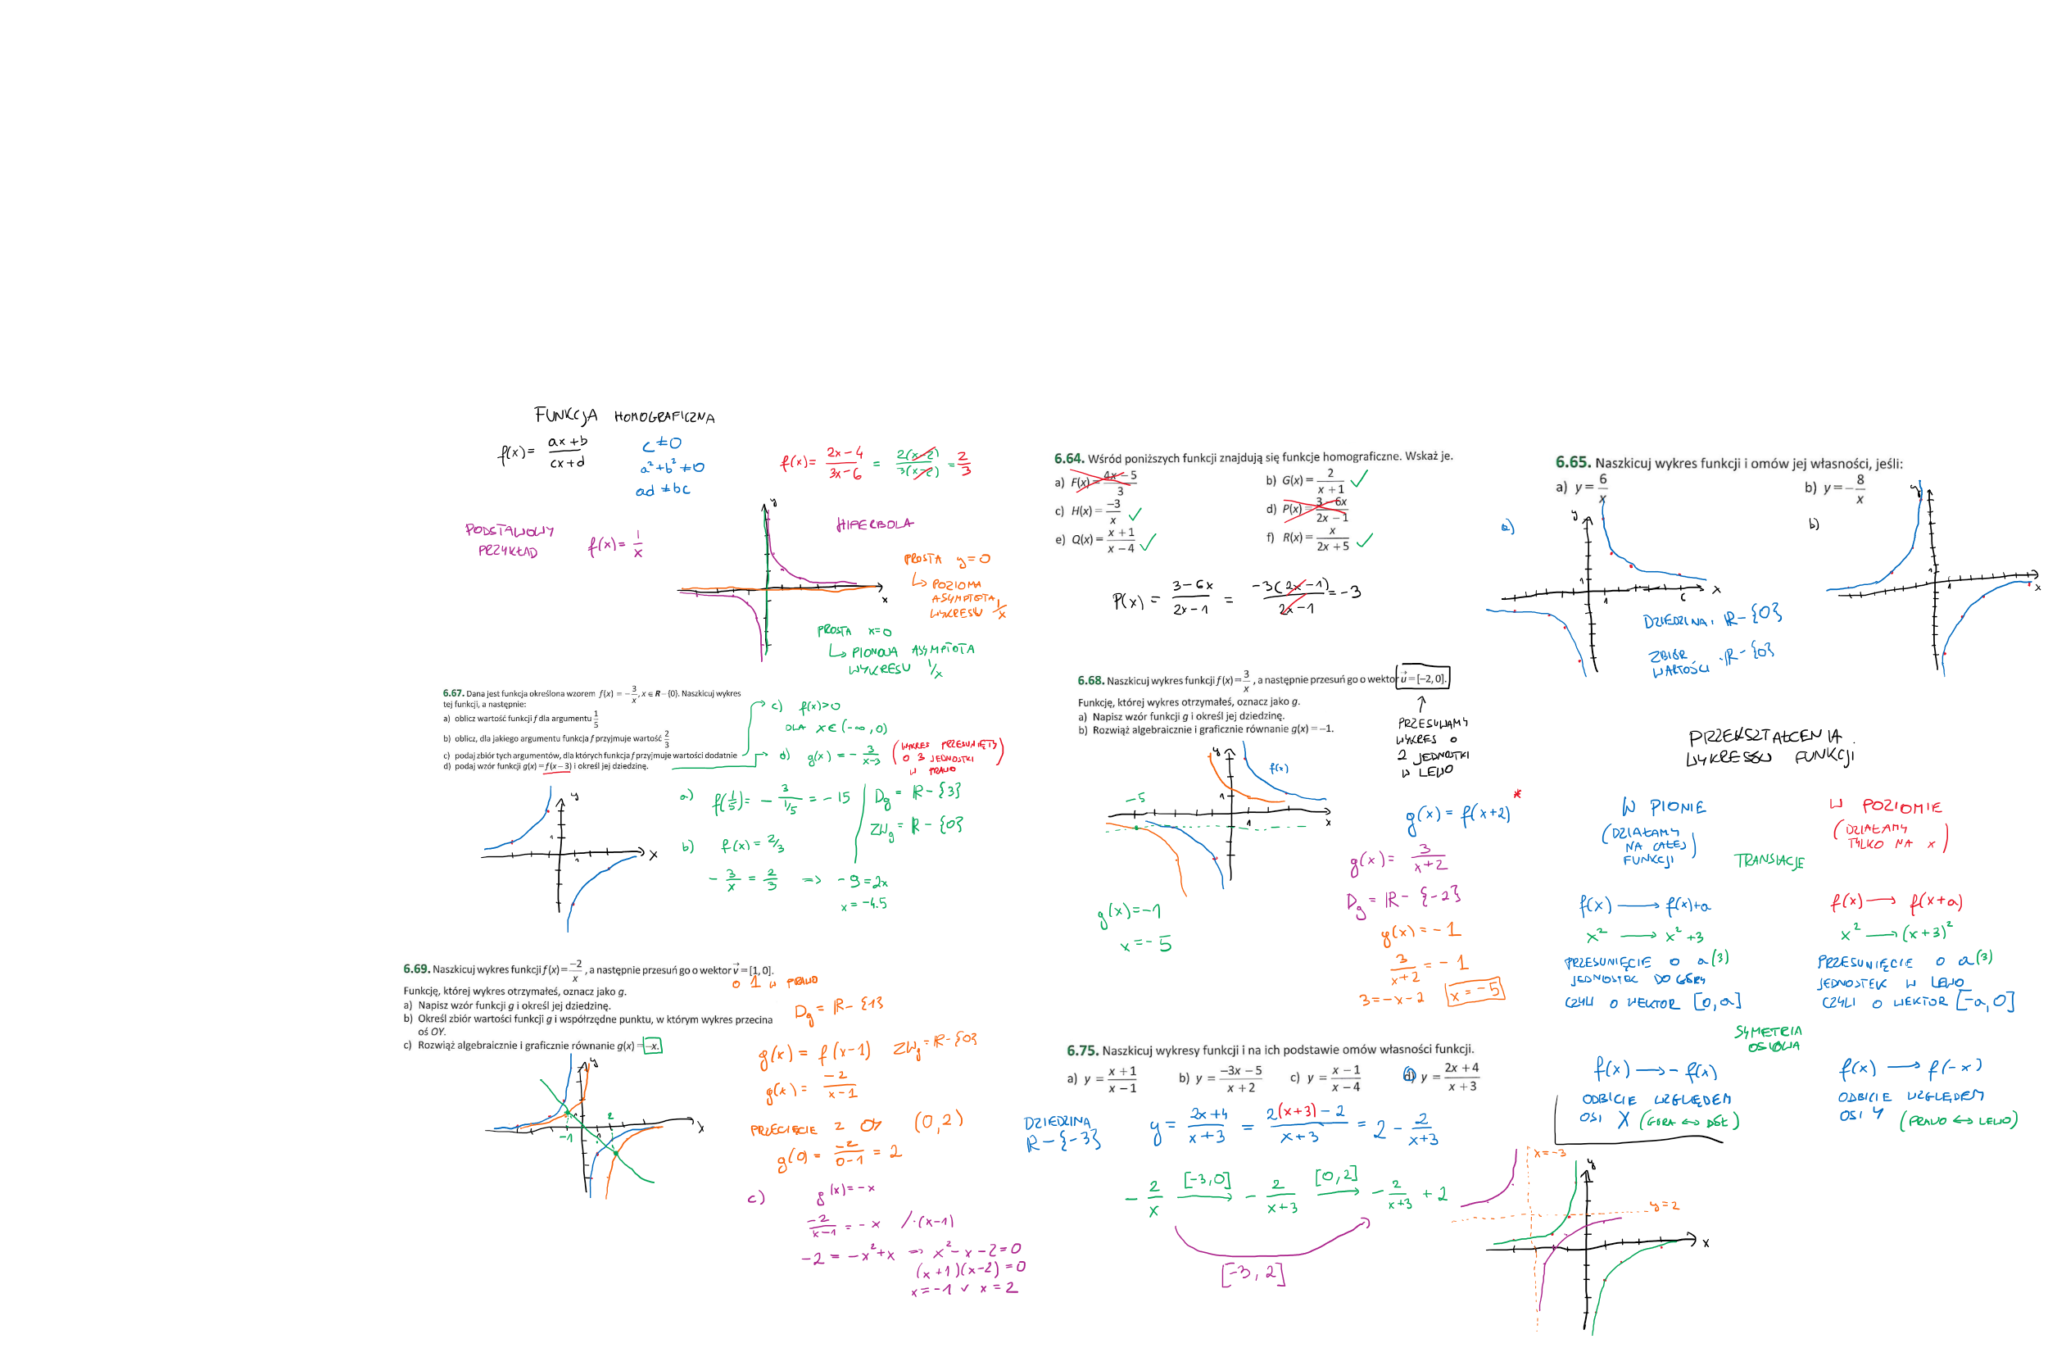 FUNKCJA HOMOGRAFICZNA
f(x) = (ax+b)/(cx+d)
c ≠ 0
a² + b² ≠ 0
ad ≠ bc
f(x) = (2x-4)/(3x-6) = 2(x-2)/3(x-2) = 2/3
PODSTAWOWY PRZYKŁAD
f(x) = 1/x
HIPERBOLA
y
x
PROSTA y=0
↳ POZIOMA
ASYMPTOTA
WYKRESU 1/x
PROSTA x=0
↳ PIONOWA ASYMPTOTA
WYKRESU 1/x
6.64. Wśród poniższych funkcji znajdują się funkcje homograficzne. Wskaż je.
a) F(x) = (4x-5)/3
b) G(x) = 2/(x+1) ✓
c) H(x) = -3/x ✓
d) P(x) = (3-6x)/(2x-1)
e) Q(x) = (x+1)/(x-4) ✓
f) R(x) = x/(2x+5) ✓
P(x) = (3-6x)/(2x-1) = -3(2x-1)/(2x-1) = -3
6.65. Naszkicuj wykres funkcji i omów jej własności, jeśli:
a) y = 6/x
b) y = -8/x
a)
y
1
1
6
x
DZIEDZINA: ℝ-{0}
ZBIÓR
WARTOŚCI: ℝ-{0}
b)
y
1
1
x
6.67. Dana jest funkcja określona wzorem f(x) = -3/x, x ∈ R - {0}. Naszkicuj wykres
tej funkcji, a następnie:
a) oblicz wartość funkcji f dla argumentu 1/5
b) oblicz, dla jakiego argumentu funkcja f przyjmuje wartość 2/3
c) podaj zbiór tych argumentów, dla których funkcja f przyjmuje wartości dodatnie
d) podaj wzór funkcji g(x) = f(x - 3) i określ jej dziedzinę.
c) f(x)>0
DLA x∈(-∞,0)
d) g(x) = -3/(x-3)
(WYKRES PRZESUNIĘTY
O 3 JEDNOSTKI
W PRAWO)
y
1
1
x
a) f(1/5) = -3/(1/5) = -15
D_g = ℝ-{3}
ZW_g = ℝ-{0}
b) f(x) = 2/3
-3/x = 2/3 => -9=2x
x = -4.5
6.68. Naszkicuj wykres funkcji f(x) = 3/x, a następnie przesuń go o wektor u⃗ = [-2, 0].
Funkcję, której wykres otrzymałeś, oznacz jako g.
a) Napisz wzór funkcji g i określ jej dziedzinę.
b) Rozwiąż algebraicznie i graficznie równanie g(x) = -1.
↑
PRZESUWAMY
WYKRES O
2 JEDNOSTKI
W LEWO
y
f(x)
-5
1
1
x
g(x)=-1
x=-5
g(x) = f(x+2) *
g(x) = 3/(x+2)
D_g = ℝ-{-2}
g(x) = -1
3/(x+2) = -1
3=-x-2
x=-5
PRZEKSZTAŁCENIA
WYKRESÓW FUNKCJI
W PIONIE
(DZIAŁAMY
NA CAŁEJ
FUNKCJI)
W POZIOMIE
(DZIAŁAMY
TYLKO NA x)
TRANSLACJE
f(x) → f(x)+a
x² → x²+3
PRZESUNIĘCIE O a(3)
JEDNOSTEK DO GÓRY
CZYLI O WEKTOR [0,a]
f(x) → f(x+a)
x² → (x+3)²
PRZESUNIĘCIE O a(3)
JEDNOSTEK W LEWO
CZYLI O WEKTOR [-a,0]
SYMETRIA
OSIOWA
f(x) → -f(x)
ODBICIE WZGLĘDEM
OSI X (GÓRA ↔ DÓŁ)
f(x) → f(-x)
ODBICIE WZGLĘDEM
OSI Y (PRAWO ↔ LEWO)
6.69. Naszkicuj wykres funkcji f(x) = -2/x, a następnie przesuń go o wektor v⃗ = [1, 0].
O 1 W PRAWO
Funkcję, której wykres otrzymałeś, oznacz jako g.
a) Napisz wzór funkcji g i określ jej dziedzinę.
b) Określ zbiór wartości funkcji g i współrzędne punktu, w którym wykres przecina
oś OY.
c) Rozwiąż algebraicznie i graficznie równanie g(x) = -x.
y
-1
2
x
D_g = ℝ-{1}
g(x) = f(x-1)
ZW_g = ℝ-{0}
g(x) = -2/(x-1)
PRZECIĘCIE Z OY (0,2)
g(0) = -2/(0-1) = 2
c) g(x)=-x
-2/(x-1) = -x /·(x-1)
-2 = -x²+x => x²-x-2=0
(x+1)(x-2)=0
x=-1 ∨ x=2
6.75. Naszkicuj wykresy funkcji i na ich podstawie omów własności funkcji.
a) y = (x+1)/(x-1)
b) y = (-3x-5)/(x+2)
c) y = (x-1)/(x-4)
d) y = (2x+4)/(x+3)
DZIEDZINA
ℝ-{-3}
y = (2x+4)/(x+3) = (2(x+3)-2)/(x+3) = 2 - 2/(x+3)
-2/x [-3,0] → -2/(x+3) [0,2] → -2/(x+3) + 2
[-3,2]
x=-3
y
y=2
x